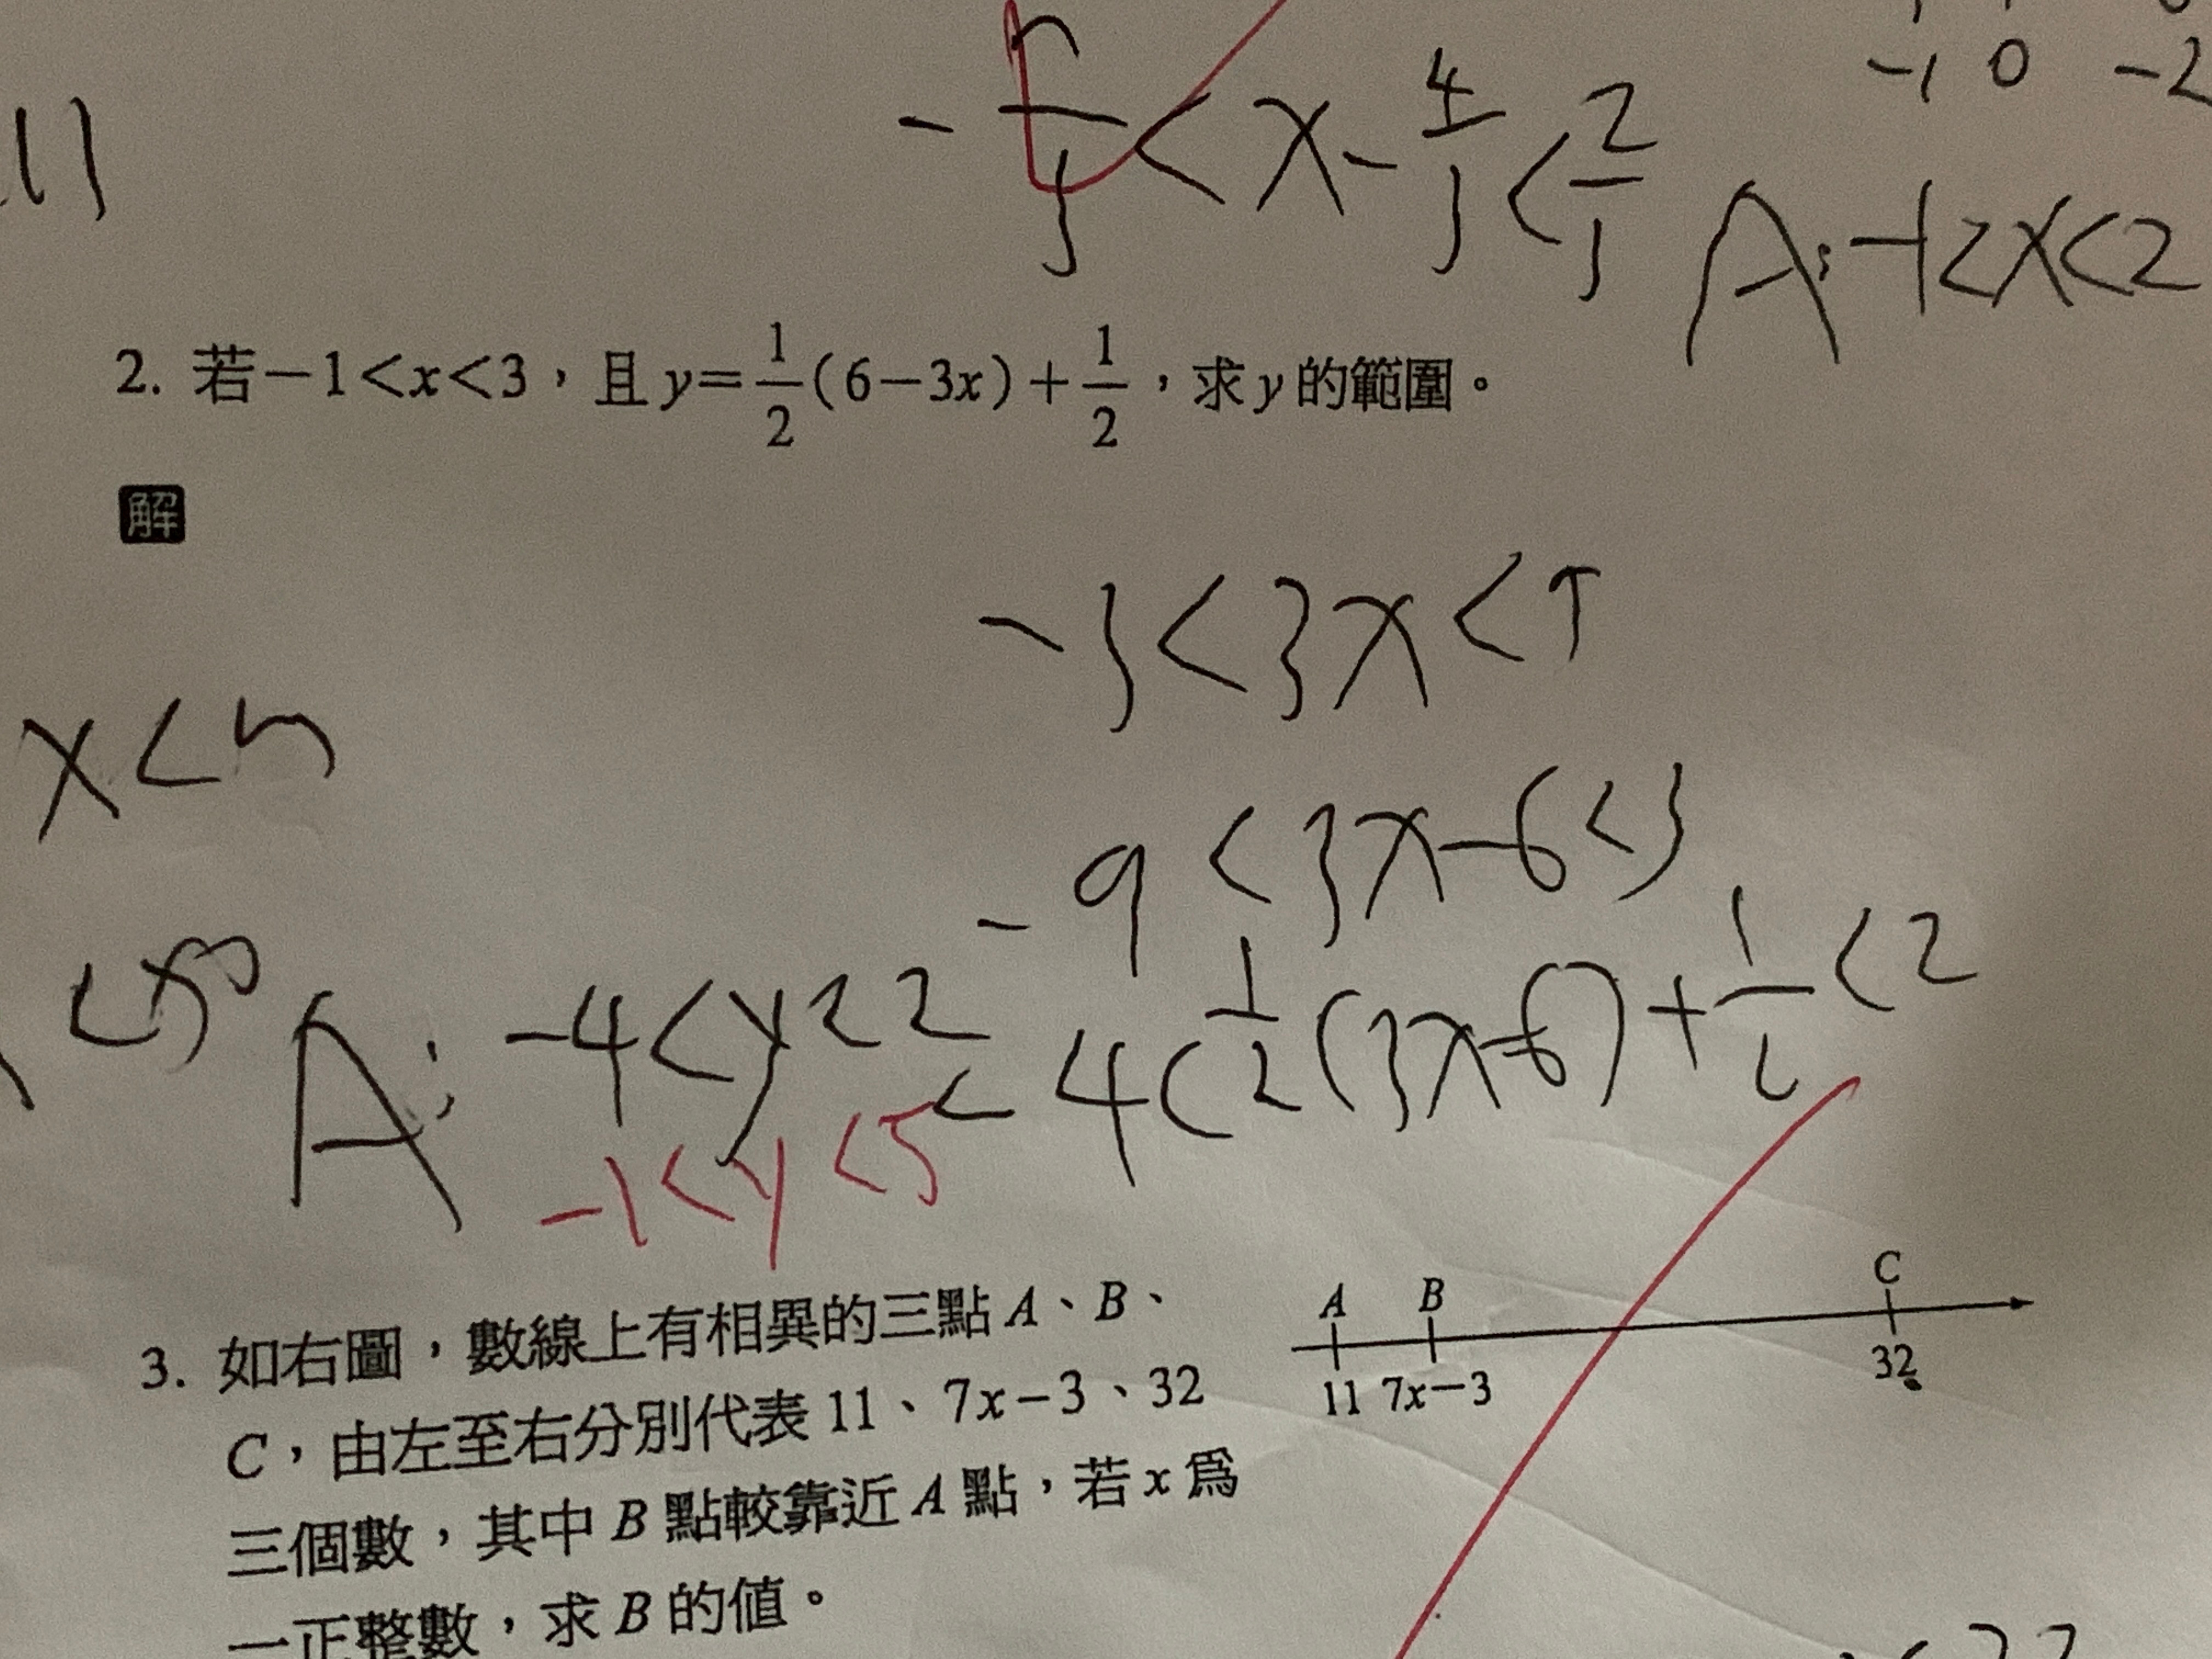 -1 0 -2
11
< x - 4/3 < 2/3
A: -1<x<2
2. 若-1<x<3，且y=1/2(6-3x)+1/2，求y的範圍。
解
-3<3x<9
x<5
-9<3x-6<3
A: -4<y<2
-4<1/2(3x-6)+1/2<2
-1<y<5
3. 如右圖，數線上有相異的三點A、B、
C，由左至右分別代表11、7x-3、32
三個數，其中B點較靠近A點，若x為
一正整數，求B的值。
A B C
11 7x-3 32